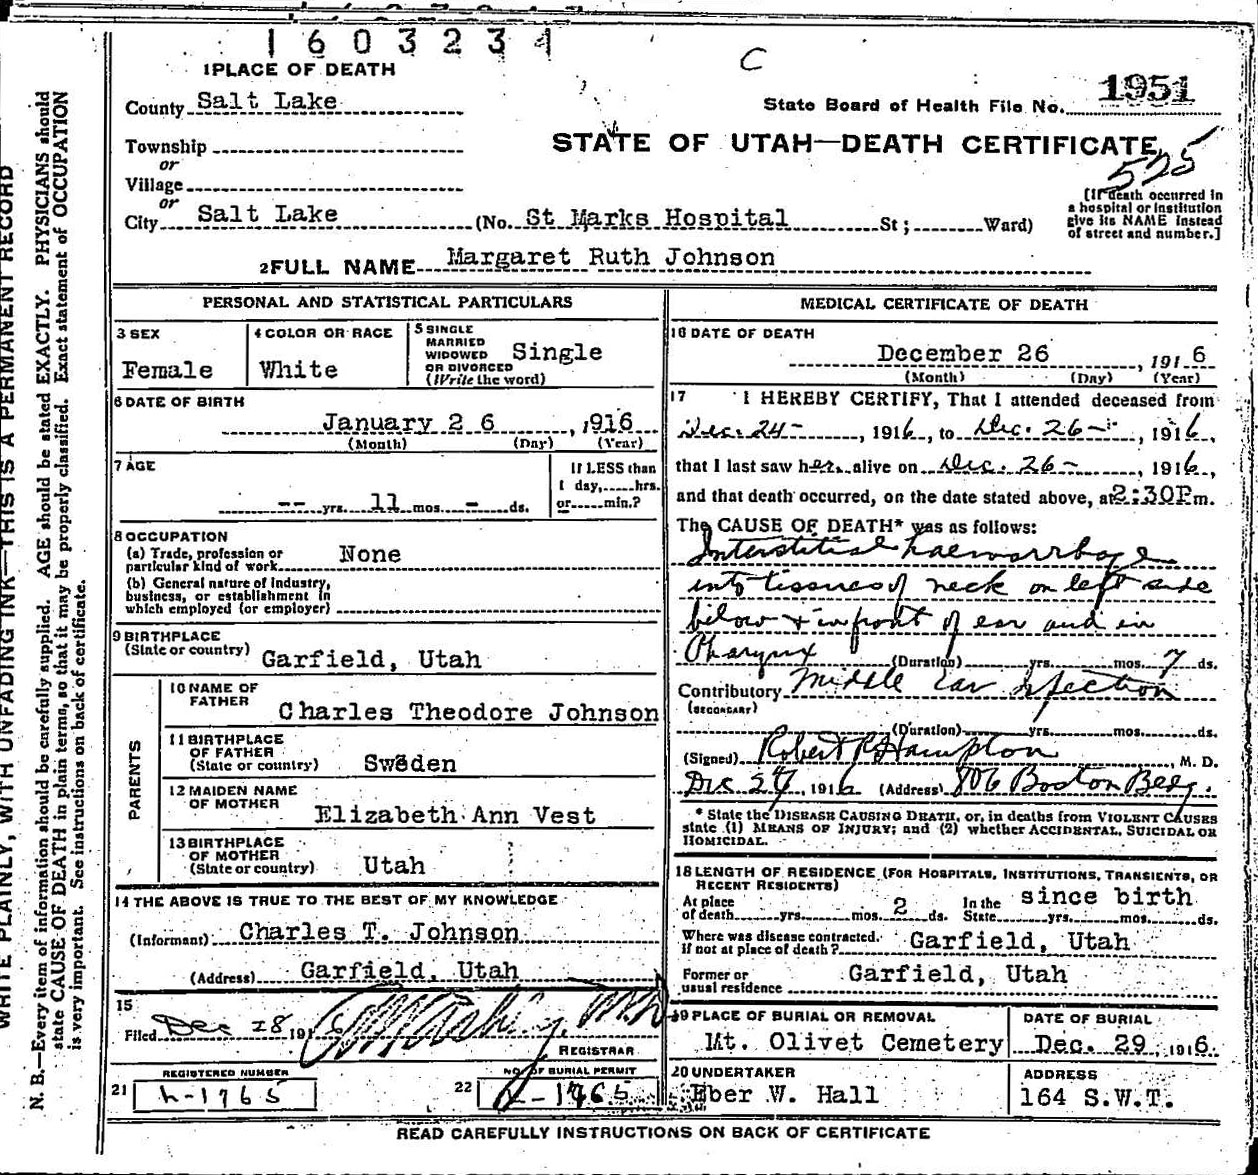 1603234
C
1951
1 PLACE OF DEATH
County Salt Lake
State Board of Health File No. 1951
Township
or
STATE OF UTAH—DEATH CERTIFICATE
525
Village
or
City Salt Lake (No. St Marks Hospital St; Ward)
[If death occurred in
a hospital or institution
give its NAME instead
of street and number.]
2 FULL NAME Margaret Ruth Johnson
PERSONAL AND STATISTICAL PARTICULARS
3 SEX
Female
4 COLOR OR RACE
White
5 SINGLE
MARRIED
WIDOWED
OR DIVORCED
(Write the word)
Single
6 DATE OF BIRTH
January 2 6, 1916
(Month) (Day) (Year)
7 AGE
-- yrs. 11 mos. - ds.
If LESS than
1 day, hrs.
or min.?
8 OCCUPATION
(a) Trade, profession or
particular kind of work None
(b) General nature of industry,
business, or establishment in
which employed (or employer)
9 BIRTHPLACE
(State or country) Garfield, Utah
PARENTS
10 NAME OF
FATHER
Charles Theodore Johnson
11 BIRTHPLACE
OF FATHER
(State or country) Sweden
12 MAIDEN NAME
OF MOTHER
Elizabeth Ann Vest
13 BIRTHPLACE
OF MOTHER
(State or country) Utah
14 THE ABOVE IS TRUE TO THE BEST OF MY KNOWLEDGE
(Informant) Charles T. Johnson
(Address) Garfield, Utah
15
Filed Dec 28 1916
REGISTRAR
REGISTERED NUMBER
21 h-1765
NO. OF BURIAL PERMIT
22 h-1765
MEDICAL CERTIFICATE OF DEATH
16 DATE OF DEATH
December 26, 1916
(Month) (Day) (Year)
17 I HEREBY CERTIFY, That I attended deceased from
Dec. 24-, 1916, to Dec. 26-, 1916,
that I last saw her alive on Dec. 26-, 1916,
and that death occurred, on the date stated above, at 2:30P m.
The CAUSE OF DEATH* was as follows:
Interstitial haemorrhage
into tissues of neck on left side
below & in front of ear and in
Pharynx (Duration) yrs. mos. 7 ds.
Contributory Middle Ear Infection
(SECONDARY)
(Duration) yrs. mos. ds.
(Signed) Robert R Hampton, M. D.
Dec 27, 1916 (Address) 806 Boston Bldg.
* State the DISEASE CAUSING DEATH, or, in deaths from VIOLENT CAUSES
state (1) MEANS OF INJURY; and (2) whether ACCIDENTAL, SUICIDAL OR
HOMICIDAL.
18 LENGTH OF RESIDENCE (FOR HOSPITALS, INSTITUTIONS, TRANSIENTS, OR
RECENT RESIDENTS)
At place
of death yrs. mos. 2 ds.
In the
State yrs. mos. ds.
since birth
Where was disease contracted,
if not at place of death? Garfield, Utah
Former or
usual residence Garfield, Utah
19 PLACE OF BURIAL OR REMOVAL
Mt. Olivet Cemetery
DATE OF BURIAL
Dec. 29, 1916.
20 UNDERTAKER
Eber W. Hall
ADDRESS
164 S.W.T.
READ CAREFULLY INSTRUCTIONS ON BACK OF CERTIFICATE
WRITE PLAINLY, WITH UNFADING INK—THIS IS A PERMANENT RECORD
N. B.—Every item of information should be carefully supplied. AGE should be stated EXACTLY. PHYSICIANS should
state CAUSE OF DEATH in plain terms, so that it may be properly classified. Exact statement of OCCUPATION
is very important. See instructions on back of certificate.